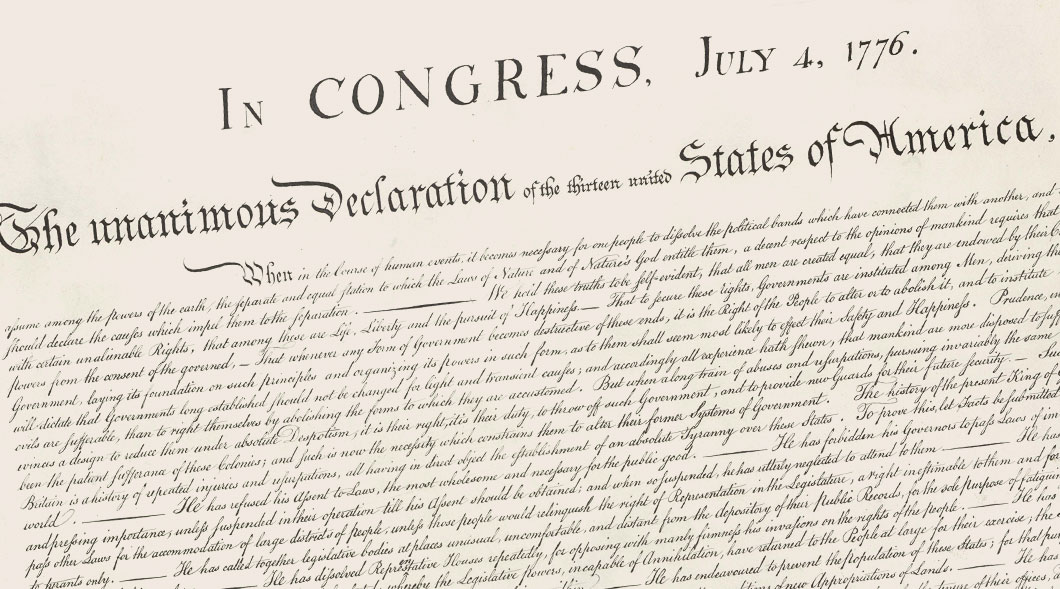 In CONGRESS, July 4, 1776.
The unanimous Declaration of the thirteen united States of America,
When in the Course of human events, it becomes necessary for one people to dissolve the political bands which have connected them with another, and
assume among the powers of the earth, the separate and equal station to which the Laws of Nature and of Nature's God entitle them, a decent respect to the opinions of mankind requires that
should declare the causes which impel them to the separation. ——— We hold these truths to be self-evident, that all men are created equal, that they are endowed by their
with certain unalienable Rights, that among these are Life, Liberty and the pursuit of Happiness.— That to secure these rights, Governments are instituted among Men, deriving
powers from the consent of the governed, — That whenever any Form of Government becomes destructive of these ends, it is the Right of the People to alter or to abolish it, and to institute
Government, laying its foundation on such principles and organizing its powers in such form, as to them shall seem most likely to effect their Safety and Happiness. Prudence,
will dictate that Governments long established should not be changed for light and transient causes; and accordingly all experience hath shewn, that mankind are more disposed to
evils are sufferable, than to right themselves by abolishing the forms to which they are accustomed. But when a long train of abuses and usurpations, pursuing invariably the same
evinces a design to reduce them under absolute Despotism, it is their right, it is their duty, to throw off such Government, and to provide new Guards for their future security. —
been the patient sufferance of these Colonies; and such is now the necessity which constrains them to alter their former Systems of Government. The history of the present King of
Britain is a history of repeated injuries and usurpations, all having in direct object the establishment of an absolute Tyranny over these States. To prove this, let Facts be submitted
world. ——— He has refused his Assent to Laws, the most wholesome and necessary for the public good. ——— He has forbidden his Governors to pass Laws of
and pressing importance, unless suspended in their operation till his Assent should be obtained; and when so suspended, he has utterly neglected to attend to them. ——— He has
pass other Laws for the accommodation of large districts of people, unless those people would relinquish the right of Representation in the Legislature, a right inestimable to them and
to tyrants only. ——— He has called together legislative bodies at places unusual, uncomfortable, and distant from the depository of their Public Records, for the sole purpose of
——— He has dissolved Representative Houses repeatedly, for opposing with manly firmness his invasions on the rights of the people. ——— He has
whereby the Legislative powers, incapable of Annihilation, have returned to the People at large for their exercise; the
——— He has endeavoured to prevent the population of these States; for that
of new Appropriations of Lands. ——— He has
of their offices,